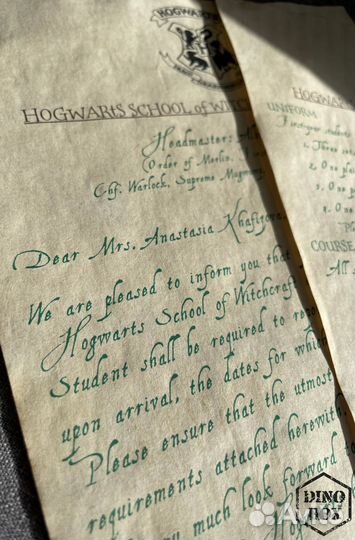 HOGWARTS
HOGWARTS SCHOOL of WITC
Headmaster: Al
(Order of Merlin,
Chf. Warlock, Supreme Mugwump,
Dear Mrs. Anastasia Khafizova
We are pleased to inform you that
Hogwarts School of Witchcraft
Student shall be required to
upon arrival, the dates for which
Please ensure that the utmost
requirements attached herewith.
much look forward to
Ho
HOGWAR
UNIFORM
First-year students
1. Three
2. One
3. One
COURSE
All
DINO
BOX
Avito